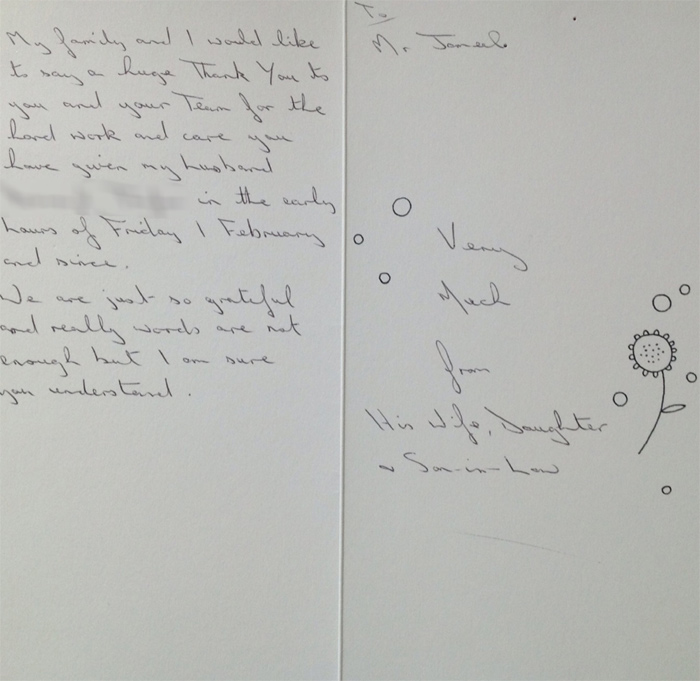 My family and I would like
to say a huge Thank You to
you and your Team for the
hard work and care you
have given my husband
in the early
hours of Friday 1 February
and since.
We are just so grateful
and really words are not
enough but I am sure
you understand.
To
Mr Jameel
Very
Much
from
His Wife, Daughter
& Son-in-Law